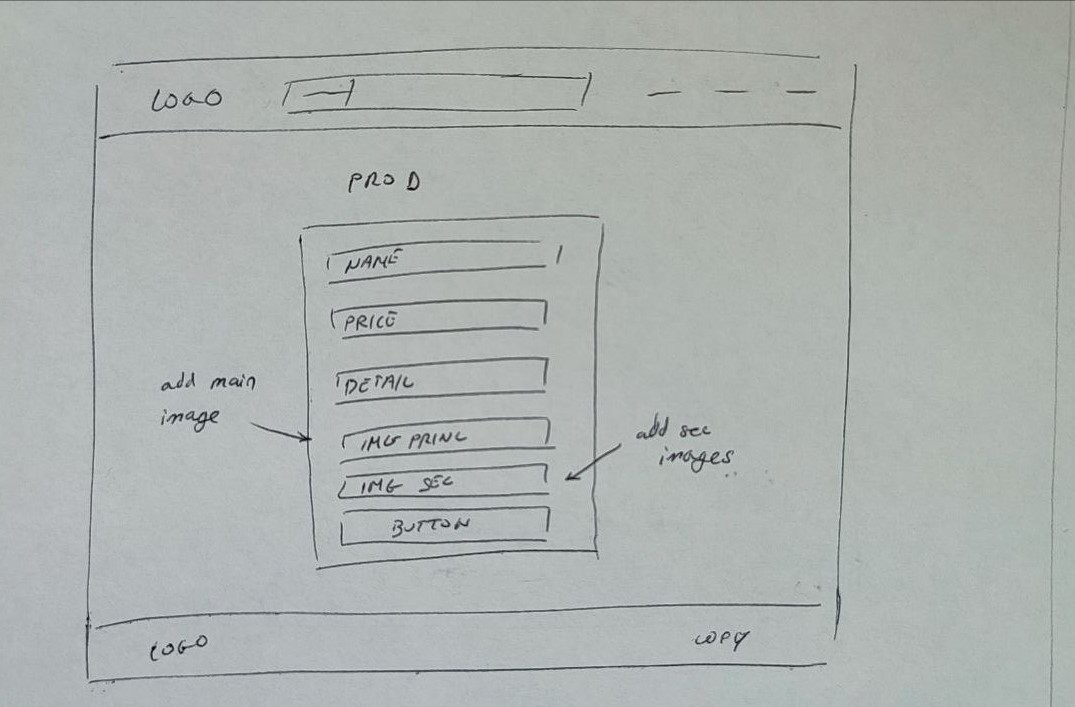 LOGO
PROD
NAME
PRICE
DETAIL
add main
image
IMG PRINC
add sec
images
IMG SEC
BUTTON
LOGO
COPY